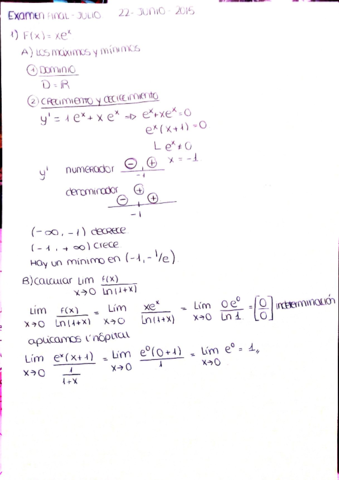 Examen Final - Julio 22 - Junio - 2015
1) F(x) = xeˣ
A) Los maximos y mínimos
① Dominio
D = R
② Crecimiento y decrecimiento
y' = 1 eˣ + x eˣ ⇒ eˣ + xeˣ = 0
eˣ (x+1) = 0
L eˣ ≠ 0
x = -1
y' numerador ⊖ , ⊕
-1
denominador ⊕
⊖ , ⊕
-1
(-∞, -1) decrece
(-1, +∞) crece
Hay un mínimo en (-1, -1/e)
B) calcular Lim x→0 f(x)/ln(1+x)
Lim x→0 f(x)/ln(1+x) = Lim x→0 xeˣ/ln(1+x) = Lim x→0 0e⁰/ln 1 = [0/0] indeterminación
aplicamos l'hôpital
Lim x→0 eˣ(x+1)/(1/(1+x)) = Lim x→0 e⁰(0+1)/1 = Lim x→0 e⁰ = 1,